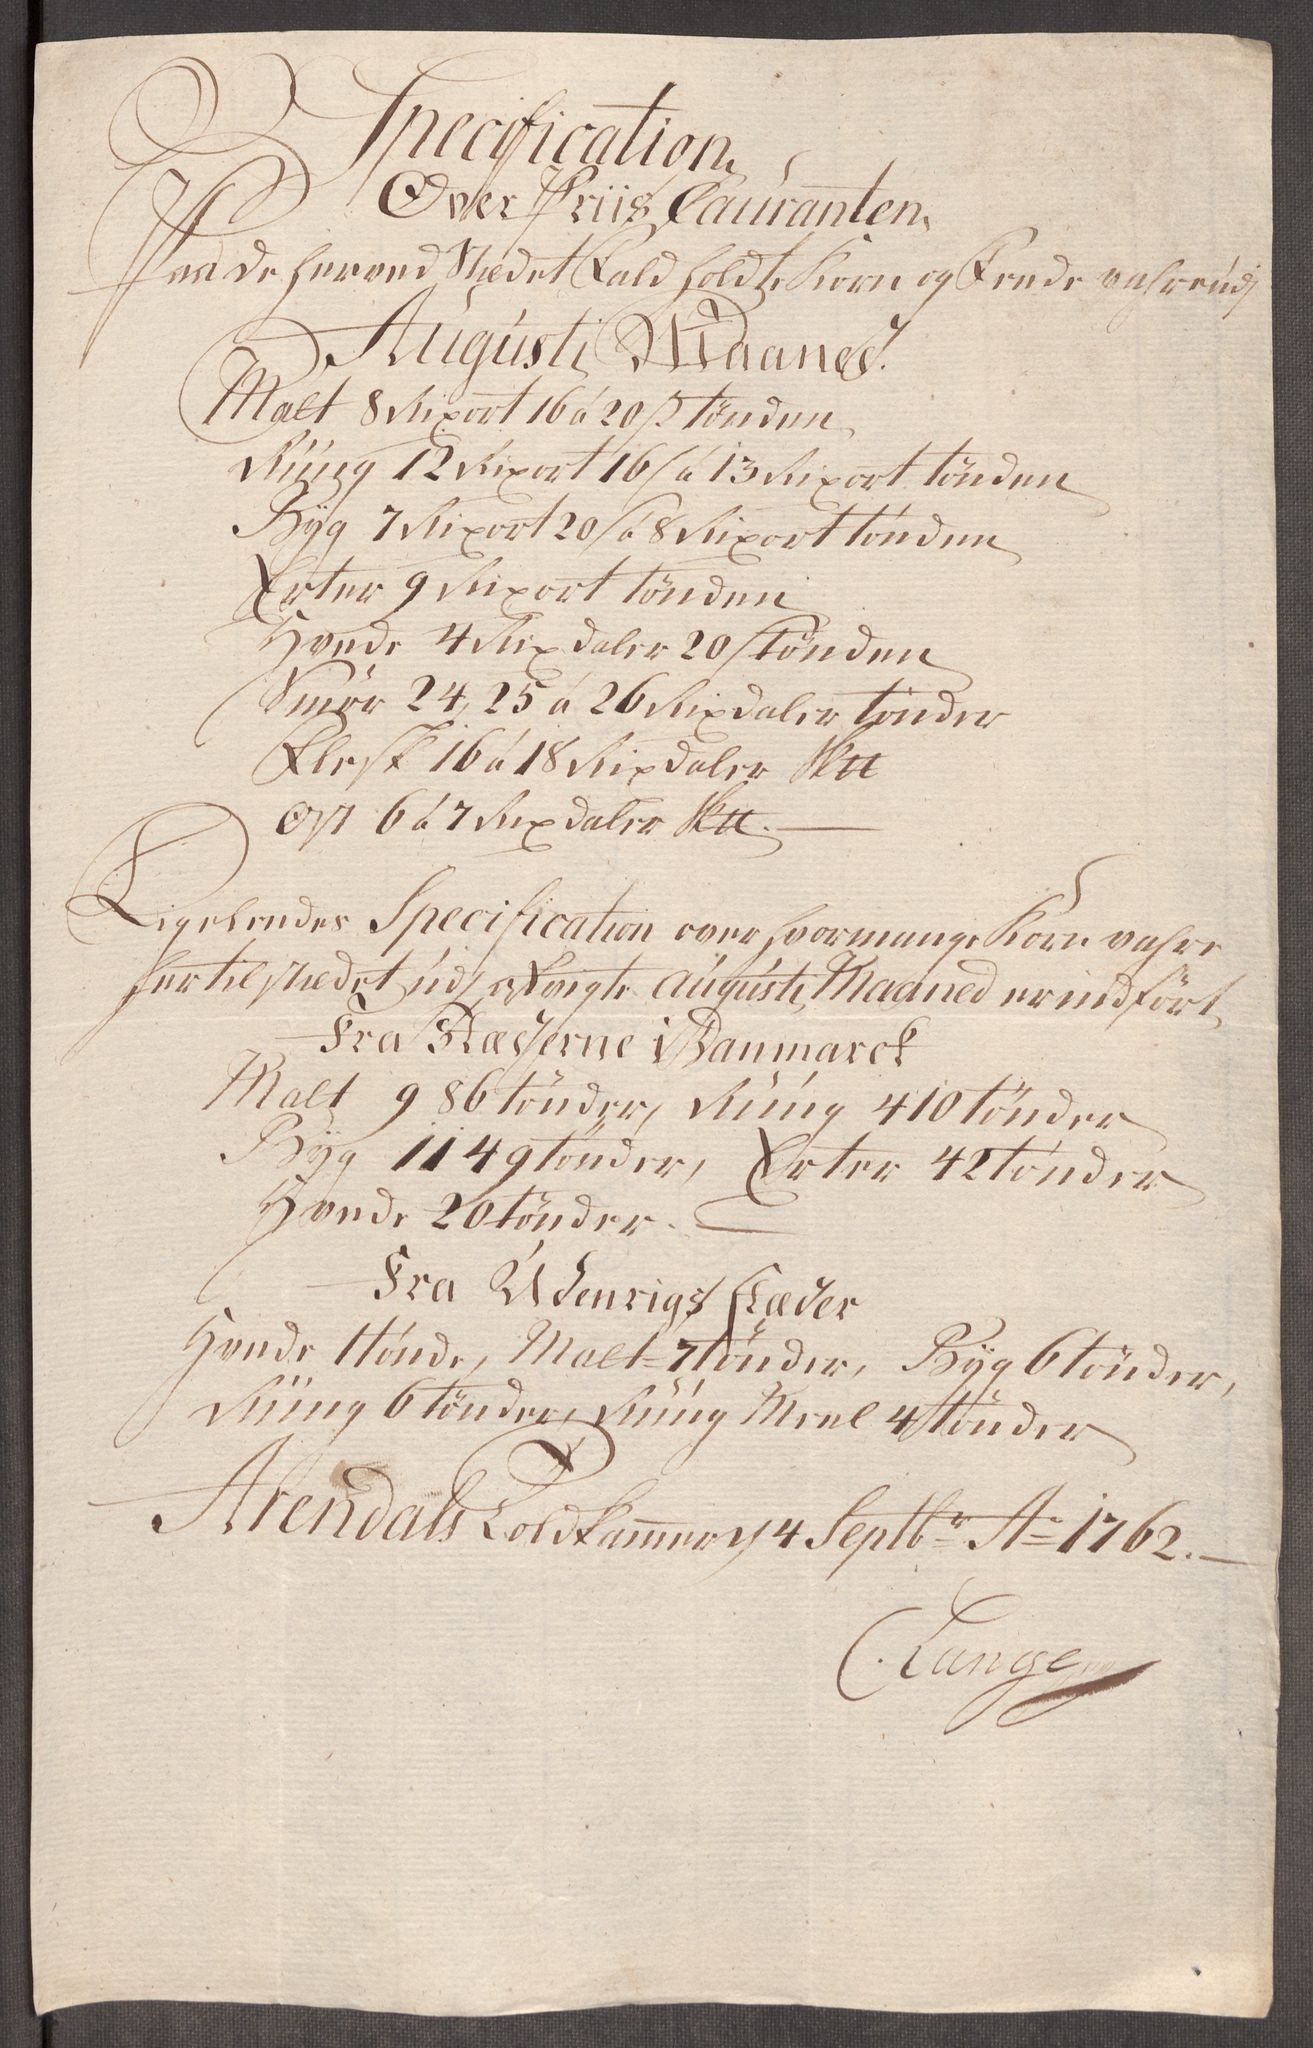 Specification
Over Priis Couranten
Paa de herved Stædet Fald holdte Korn og Fende vahre udj
Augusti Maaned.
Malt 8 Rixort 16 á 20 s tönden
Rúúg 12 Rixort 16 s á 13 Rixort tönden
Býg 7 Rixort 20 s á 8 Rixort tönden
Erter 9 Rixort tönden
Hvede 4 Rixdaler 20 s tönden
Smör 24, 25 á 26 Rixdaler tönder
Flesk 16 á 18 Rixdaler Sktt
Ost 6 á 7 Rixdaler Sktt.
Ligeleedes Specification over hvormange Korn vahre
hertil Stædet udj Augusti Maaned er indfört
Fra Stæderne i Danmarck
Malt 986 tönder, Rúúg 410 tönder
Býg 1149 tönder, Erter 42 tönder
Hvede 20 tönder.
Fra Udenrigs stæder
Hvede 1 tönde, Malt 7 tönder, Býg 6 tönder,
Rúúg 6 tönder, Rúúg Meel 4 tönder
Arendals Toldkammer 4 Septbr Ao 1762.
C. Lange